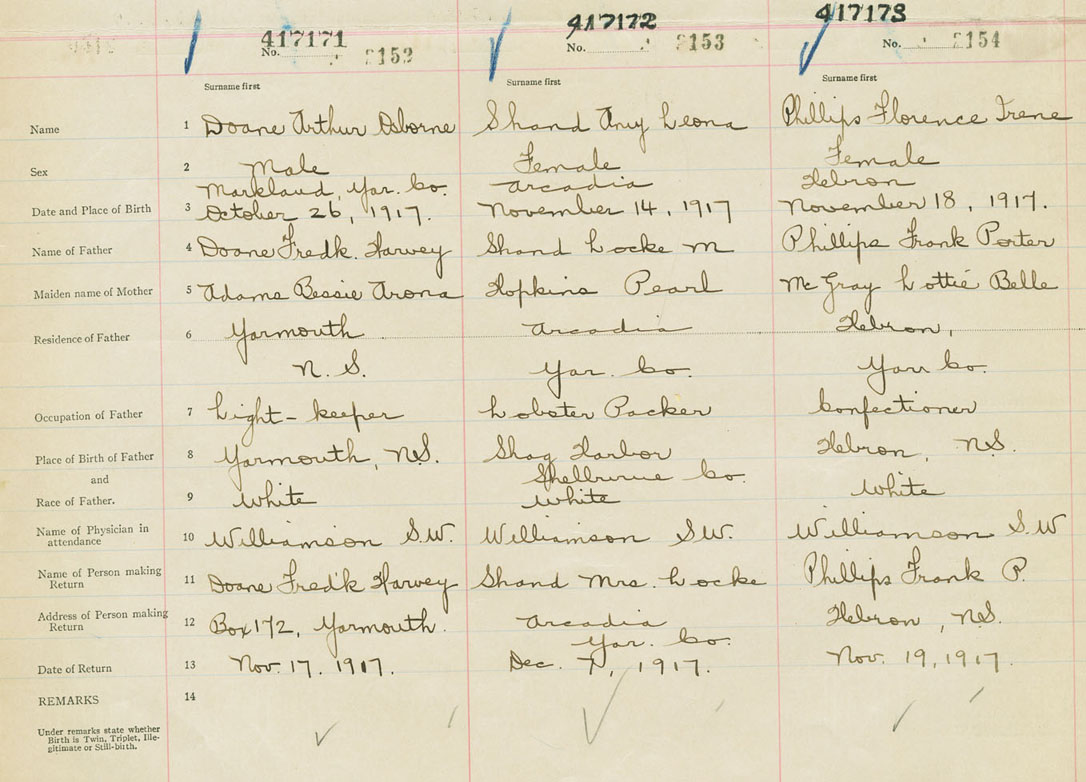 417171 417172 417173
No. 2152 No. 2153 No. 2154
Surname first Surname first Surname first
Name 1 Doane Arthur Osborne Shand Amy Leona Phillips Florence Irene
Sex 2 Male Female Female
Markland, Yar. Co. Arcadia Hebron
Date and Place of Birth 3 October 26, 1917. November 14, 1917 November 18, 1917.
Name of Father 4 Doane Fredk. Harvey Shand Locke M Phillips Frank Porter
Maiden name of Mother 5 Adams Bessie Arona Hopkins Pearl McGray Lottie Belle
Residence of Father 6 Yarmouth Arcadia Hebron,
N. S. Yar. Co. Yar Co.
Occupation of Father 7 Light-keeper Lobster Packer Confectioner
Place of Birth of Father 8 Yarmouth, N.S. Shag Harbor Hebron, N.S.
and Shelburne Co.
Race of Father. 9 White White White
Name of Physician in attendance 10 Williamson S.W. Williamson S.W. Williamson S.W
Name of Person making Return 11 Doane Fredk Harvey Shand Mrs. Locke Phillips Frank P.
Address of Person making Return 12 Box 172, Yarmouth. Arcadia Hebron, N.S.
Yar. Co.
Date of Return 13 Nov. 17. 1917. Dec. 7, 1917. Nov. 19, 1917.
REMARKS 14
Under remarks state whether
Birth is Twin, Triplet, Ille-
gitimate or Still-birth.